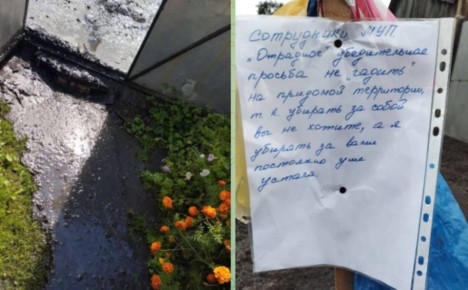 Сотрудники МУП
"Отрадное" убедительная
просьба не "гадить"
на придомой территории,
т.к убирать за собой
вы не хотите, а я
убирать за вами
постоянно уже
устала.